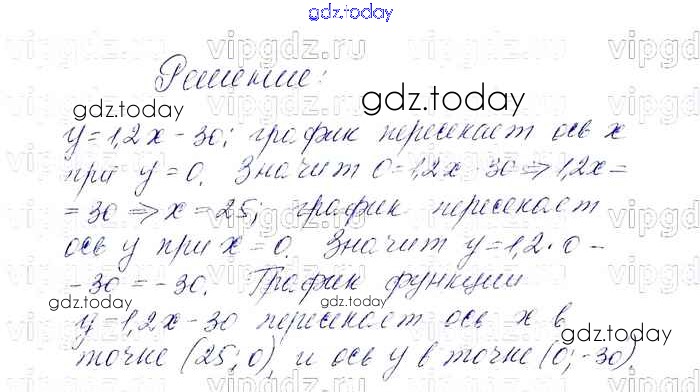 gdz.today
vipgdz.ru
Решение:
gdz.today
gdz.today
y=1,2x-30; график пересекает ось x
при y=0. Значит 0=1,2x-30⇒1,2x=
=30⇒x=25; график пересекает
ось y при x=0. Значит y=1,2·0-
-30=-30. График функции
gdz.today
gdz.today
y=1,2x-30 пересекает ось x в
точке (25;0), и ось y в точке (0;-30).